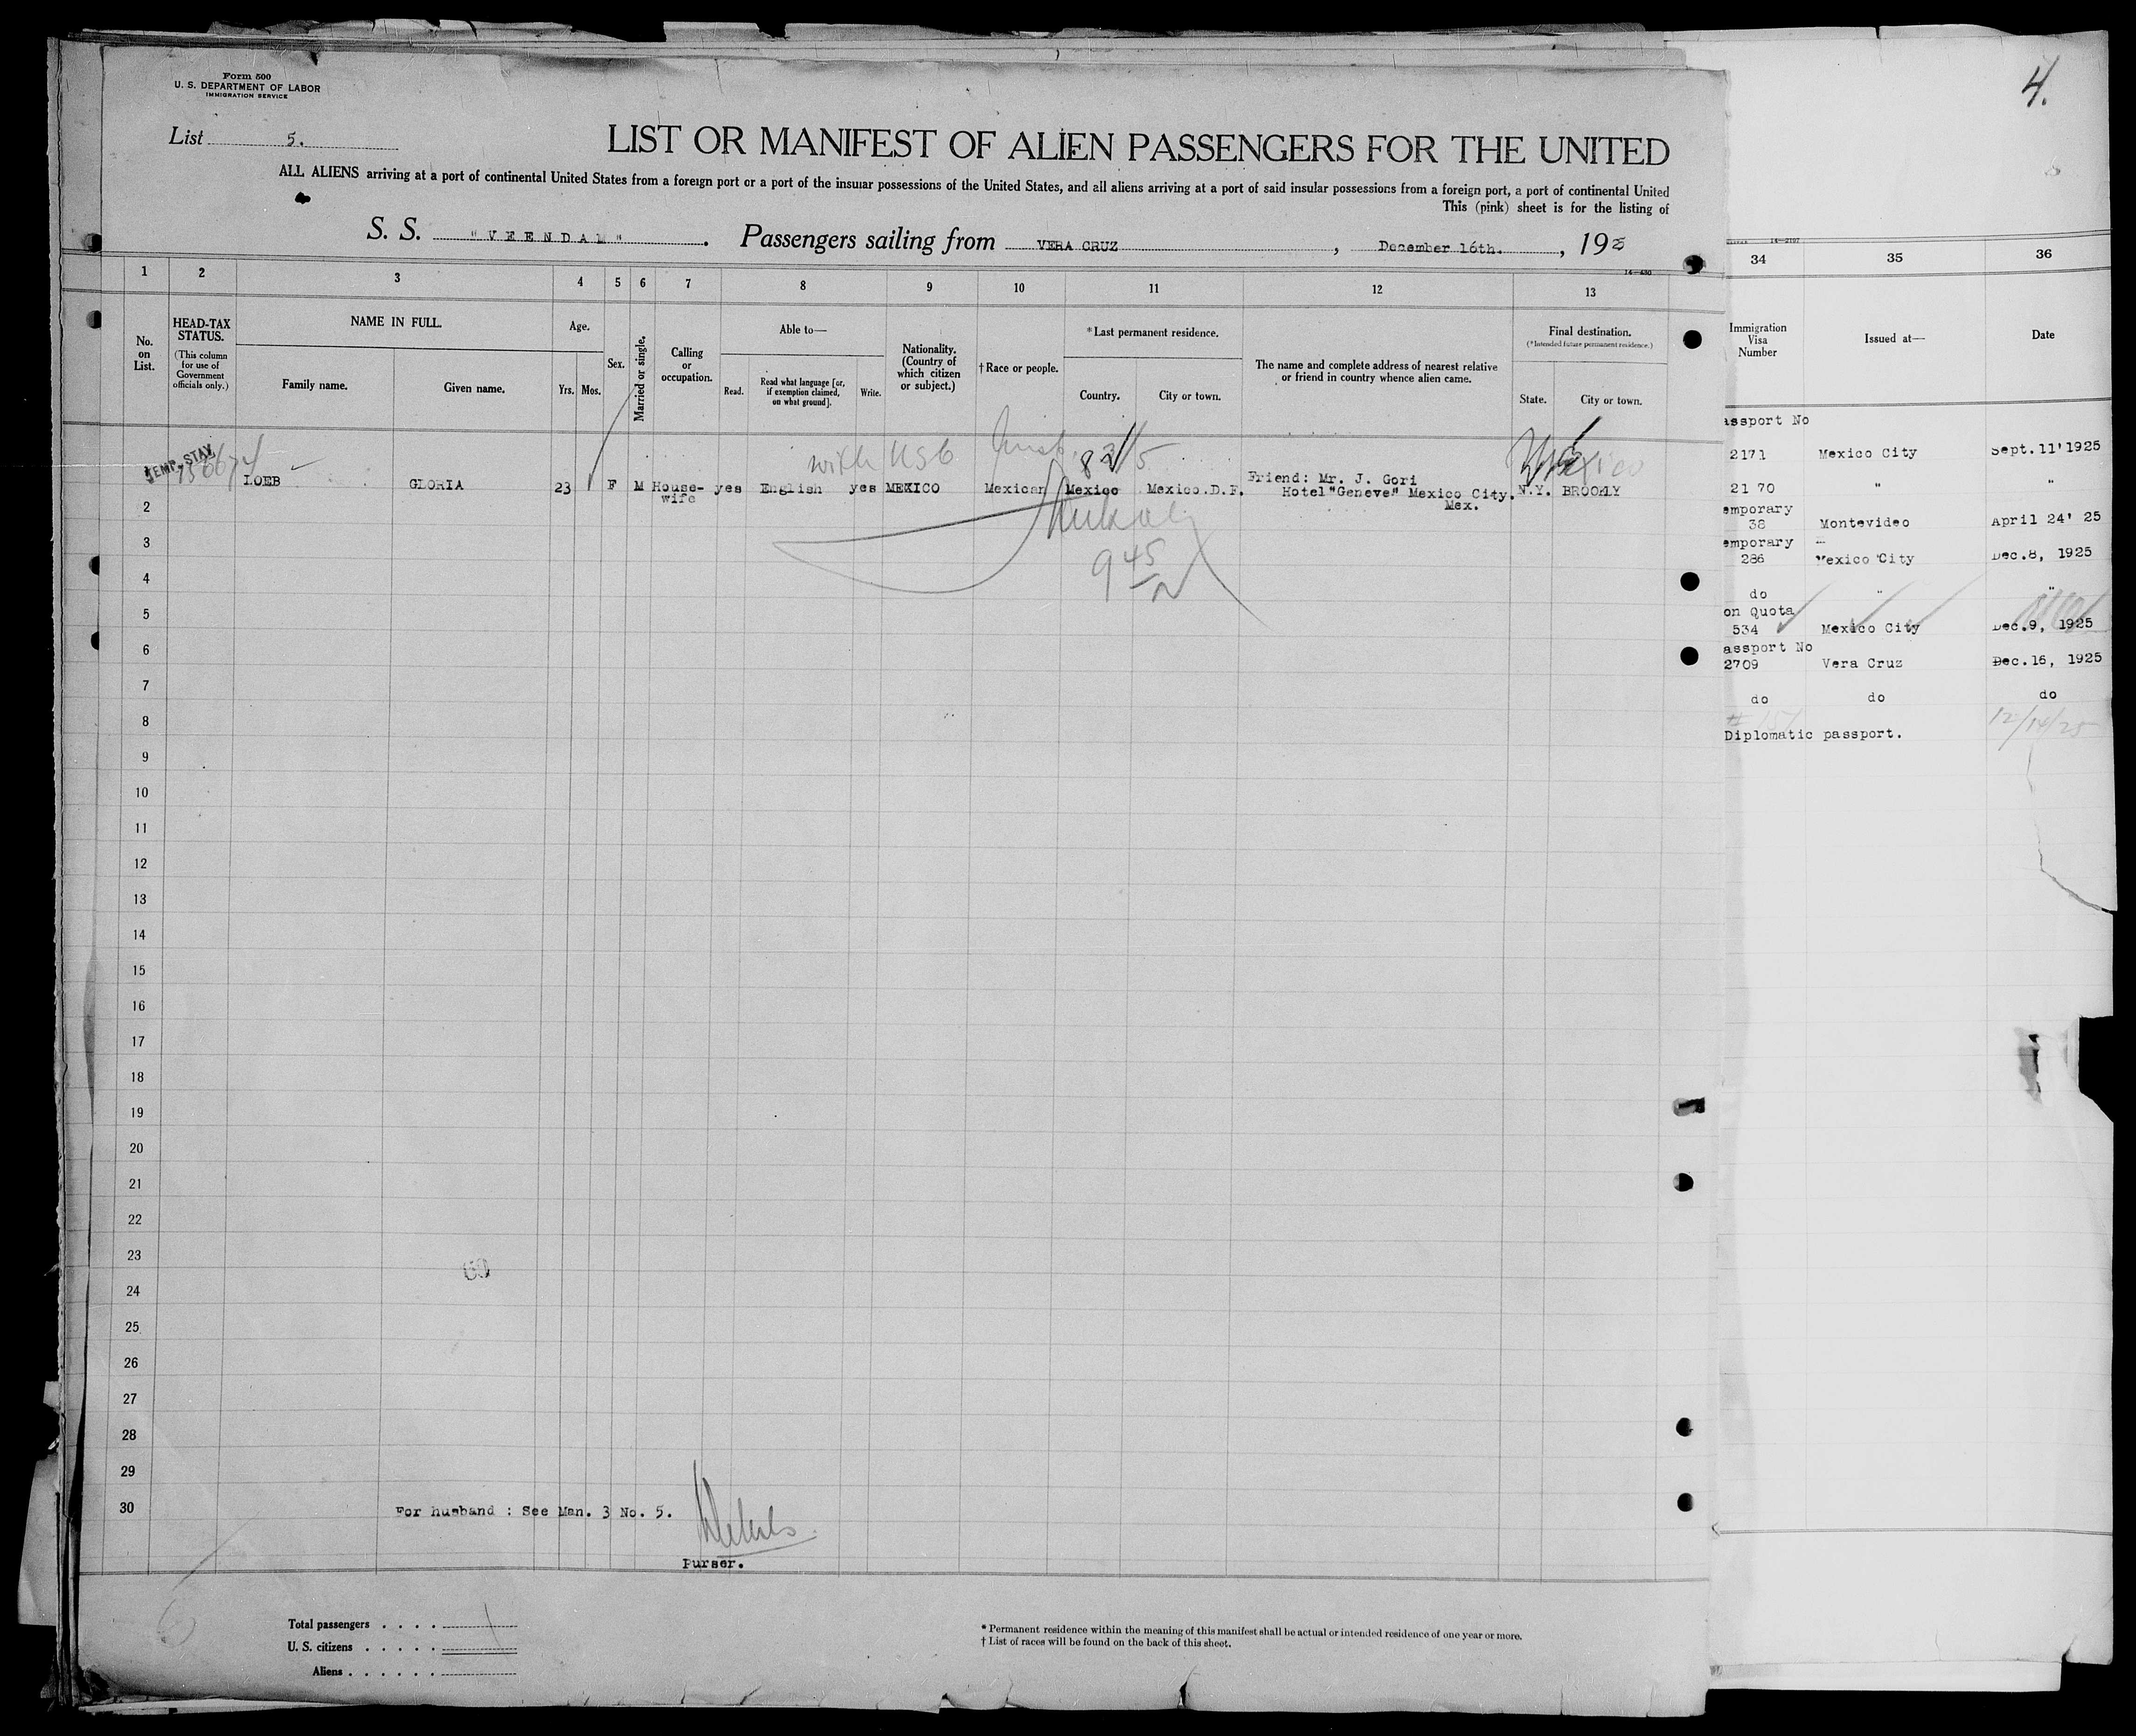 Form 500
U. S. DEPARTMENT OF LABOR
IMMIGRATION SERVICE
4.
List 5.
LIST OR MANIFEST OF ALIEN PASSENGERS FOR THE UNITED
ALL ALIENS arriving at a port of continental United States from a foreign port or a port of the insular possessions of the United States, and all aliens arriving at a port of said insular possessions from a foreign port, a port of continental United
This (pink) sheet is for the listing of
S. S. "VEENDAM". Passengers sailing from VERA CRUZ, December 16th., 1925
14—430
1 2 3 4 5 6 7 8 9 10 11 12 13
No. on List.
HEAD-TAX STATUS.
(This column for use of Government officials only.)
NAME IN FULL.
Family name.
Given name.
Age.
Yrs. Mos.
Sex.
Married or single.
Calling or occupation.
Able to—
Read.
Read what language [or, if exemption claimed, on what ground].
Write.
Nationality. (Country of which citizen or subject.)
† Race or people.
* Last permanent residence.
Country.
City or town.
The name and complete address of nearest relative or friend in country whence alien came.
Final destination.
(* Intended future permanent residence.)
State.
City or town.
with
TEMP. STAY
LOEB GLORIA 23 F M House-wife yes English yes MEXICO Mexican Mexico Mexico.D.F. Friend: Mr. J. Gori
Hotel "Geneve" Mexico City. Mex. N.Y. BROOKLY
945
2
3
4
5
6
7
8
9
10
11
12
13
14
15
16
17
18
19
20
21
22
23
24
25
26
27
28
29
30
For husband : See Man. 3 No. 5.
Purser.
Total passengers . . . .
U. S. citizens . . . . .
Aliens . . . . . .
* Permanent residence within the meaning of this manifest shall be actual or intended residence of one year or more.
† List of races will be found on the back of this sheet.
14—2197
34 35 36
Immigration Visa Number
Issued at—
Date
assport No
2171 Mexico City Sept. 11' 1925
21 70 " "
emporary
38 Montevideo April 24' 25
emporary
286 Mexico City Dec. 8, 1925
do " "
on Quota
534 Mexico City Dec. 9, 1925
assport No
2709 Vera Cruz Dec. 16, 1925
do do do
12/14/25
Diplomatic passport.